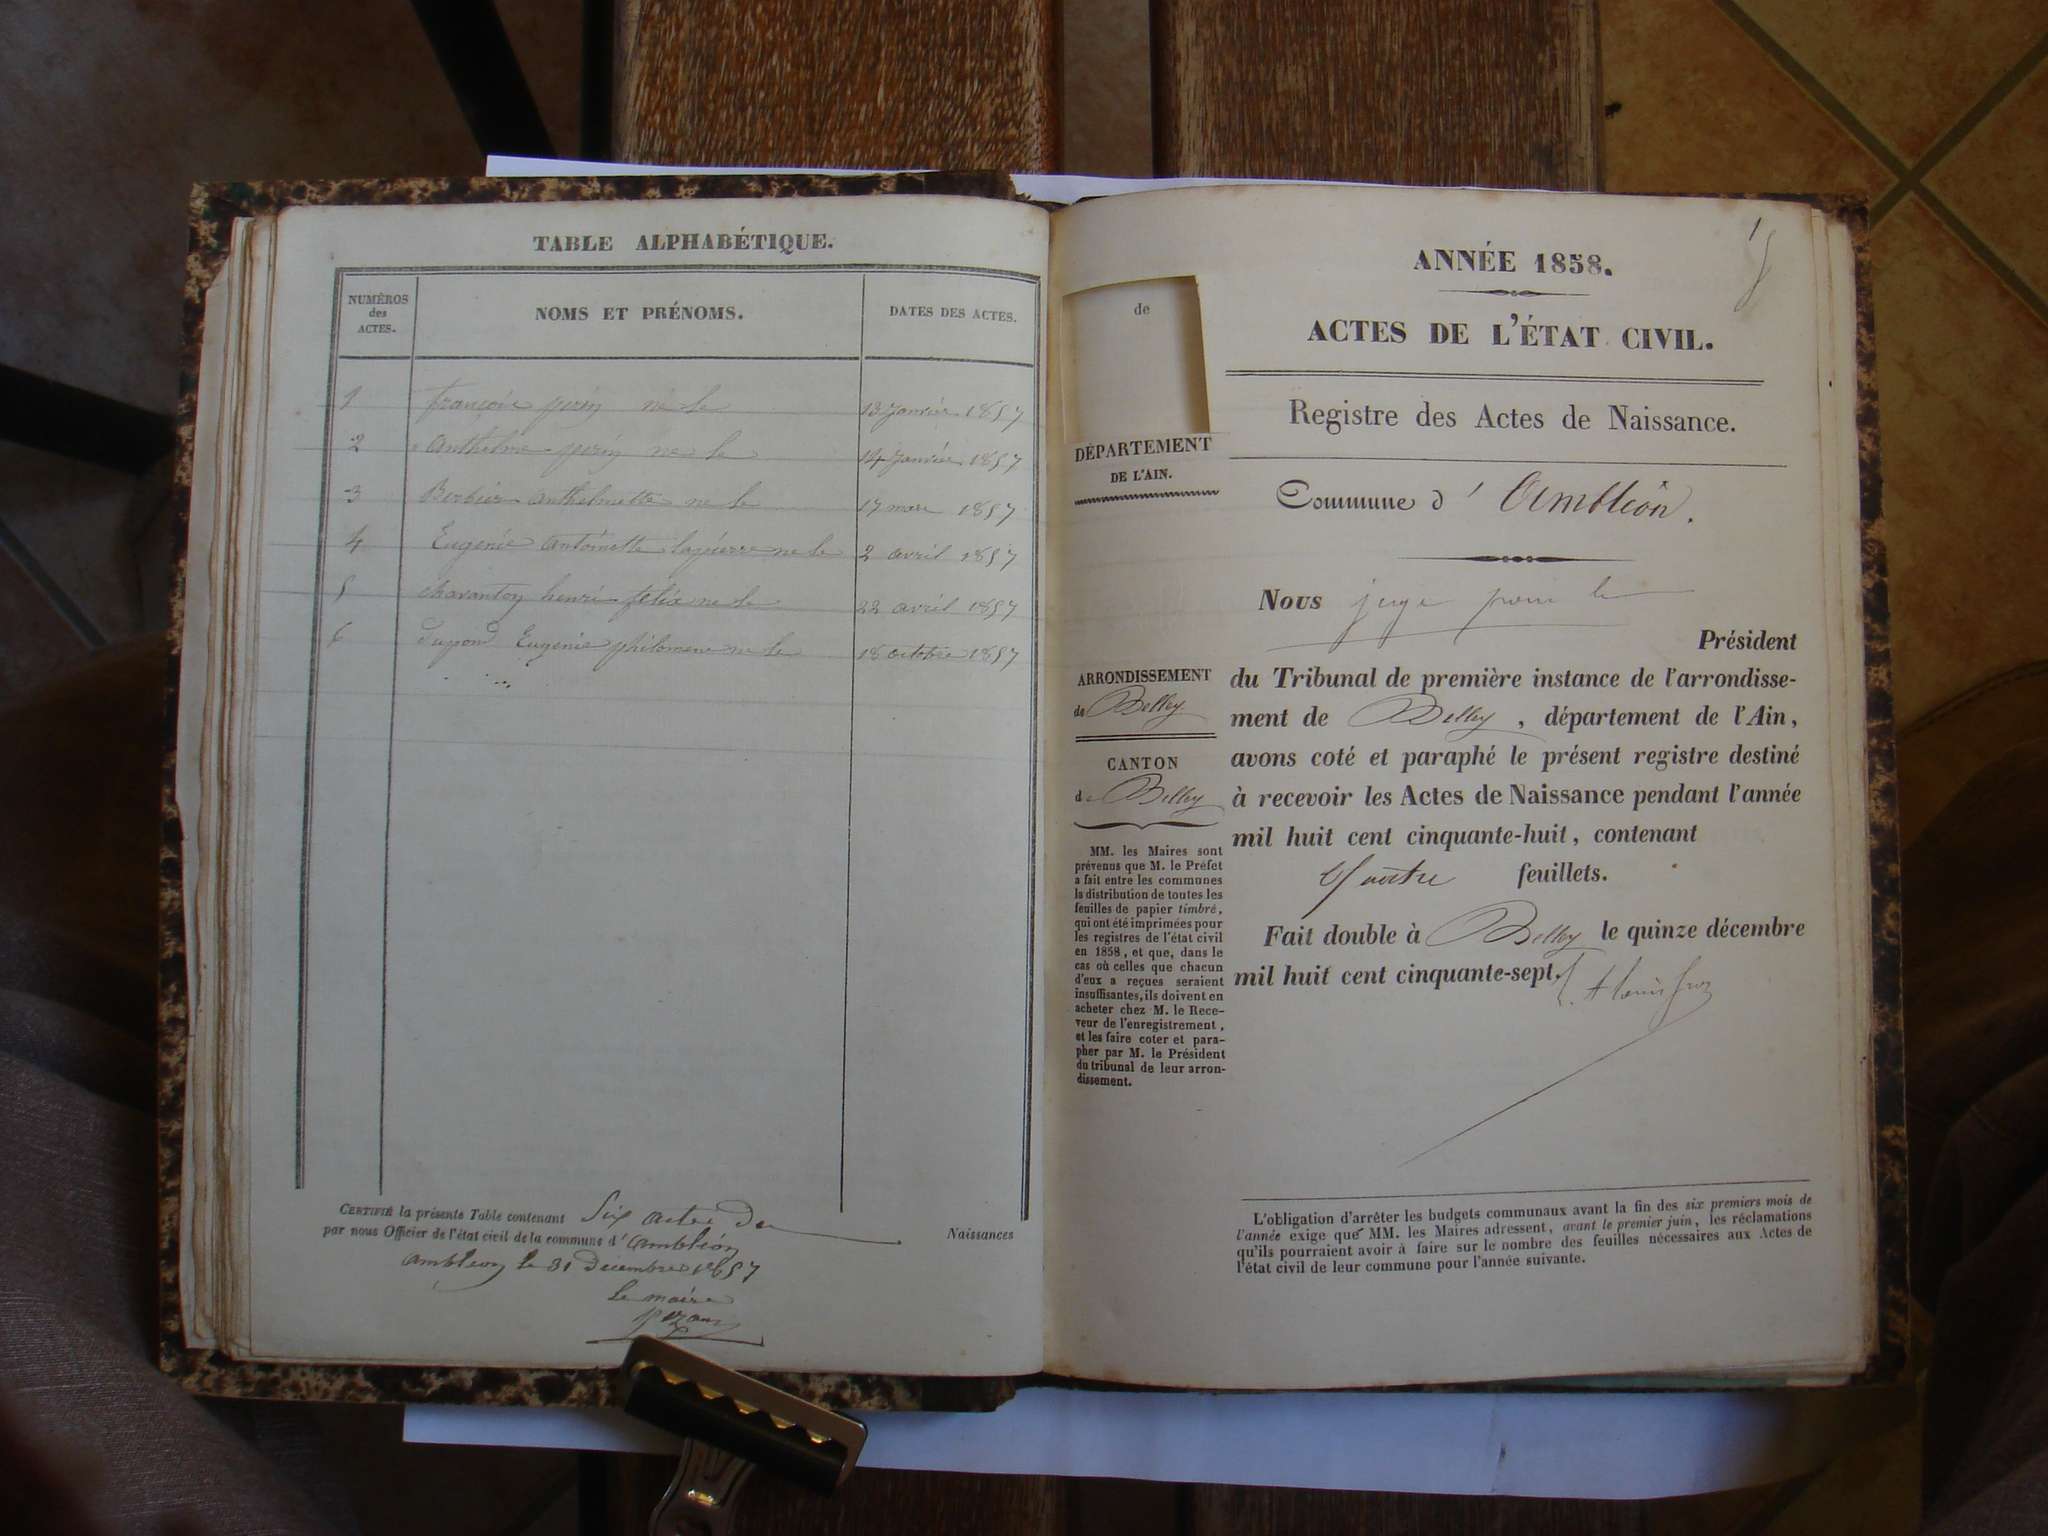 TABLE ALPHABÉTIQUE.
NUMÉROS des ACTES.
NOMS ET PRÉNOMS.
DATES DES ACTES.
1 françoise perin né le 13 Janvier 1857
2 anthelme perin né le 14 Janvier 1857
3 Berbier anthelmette né le 17 mars 1857
4 Eugénie antoinette lapierre né le 2 avril 1857
5 chavanton henri félix né le 22 avril 1857
6 dupond Eugenie philomene né le 18 octobre 1857
CERTIFIÉ la présente Table contenant Six actes de Naissances
par nous Officier de l'état civil de la commune d'ambléon
ambleon le 31 Decembre 1857
le maire
1
ANNÉE 1858.
ACTES DE L'ÉTAT CIVIL.
de
DÉPARTEMENT
DE L'AIN.
Registre des Actes de Naissance.
Commune d' Ambléon.
Nous juge pour le
Président
du Tribunal de première instance de l'arrondisse-
ment de Belley, département de l'Ain,
avons coté et paraphé le présent registre destiné
à recevoir les Actes de Naissance pendant l'année
mil huit cent cinquante-huit, contenant
Quatre feuillets.
Fait double à Belley le quinze décembre
mil huit cent cinquante-sept.
ARRONDISSEMENT
de Belley
CANTON
de Belley
MM. les Maires sont
prévenus que M. le Préfet
a fait entre les communes
la distribution de toutes les
feuilles de papier timbré,
qui ont été imprimées pour
les registres de l'état civil
en 1858, et que, dans le
cas où celles que chacun
d'eux a reçues seraient
insuffisantes, ils doivent en
acheter chez M. le Rece-
veur de l'enregistrement,
et les faire coter et para-
pher par M. le Président
du tribunal de leur arron-
dissement.
L'obligation d'arrêter les budgets communaux avant la fin des six premiers mois de
l'année exige que MM. les Maires adressent, avant le premier juin, les réclamations
qu'ils pourraient avoir à faire sur le nombre des feuilles nécessaires aux Actes de
l'état civil de leur commune pour l'année suivante.